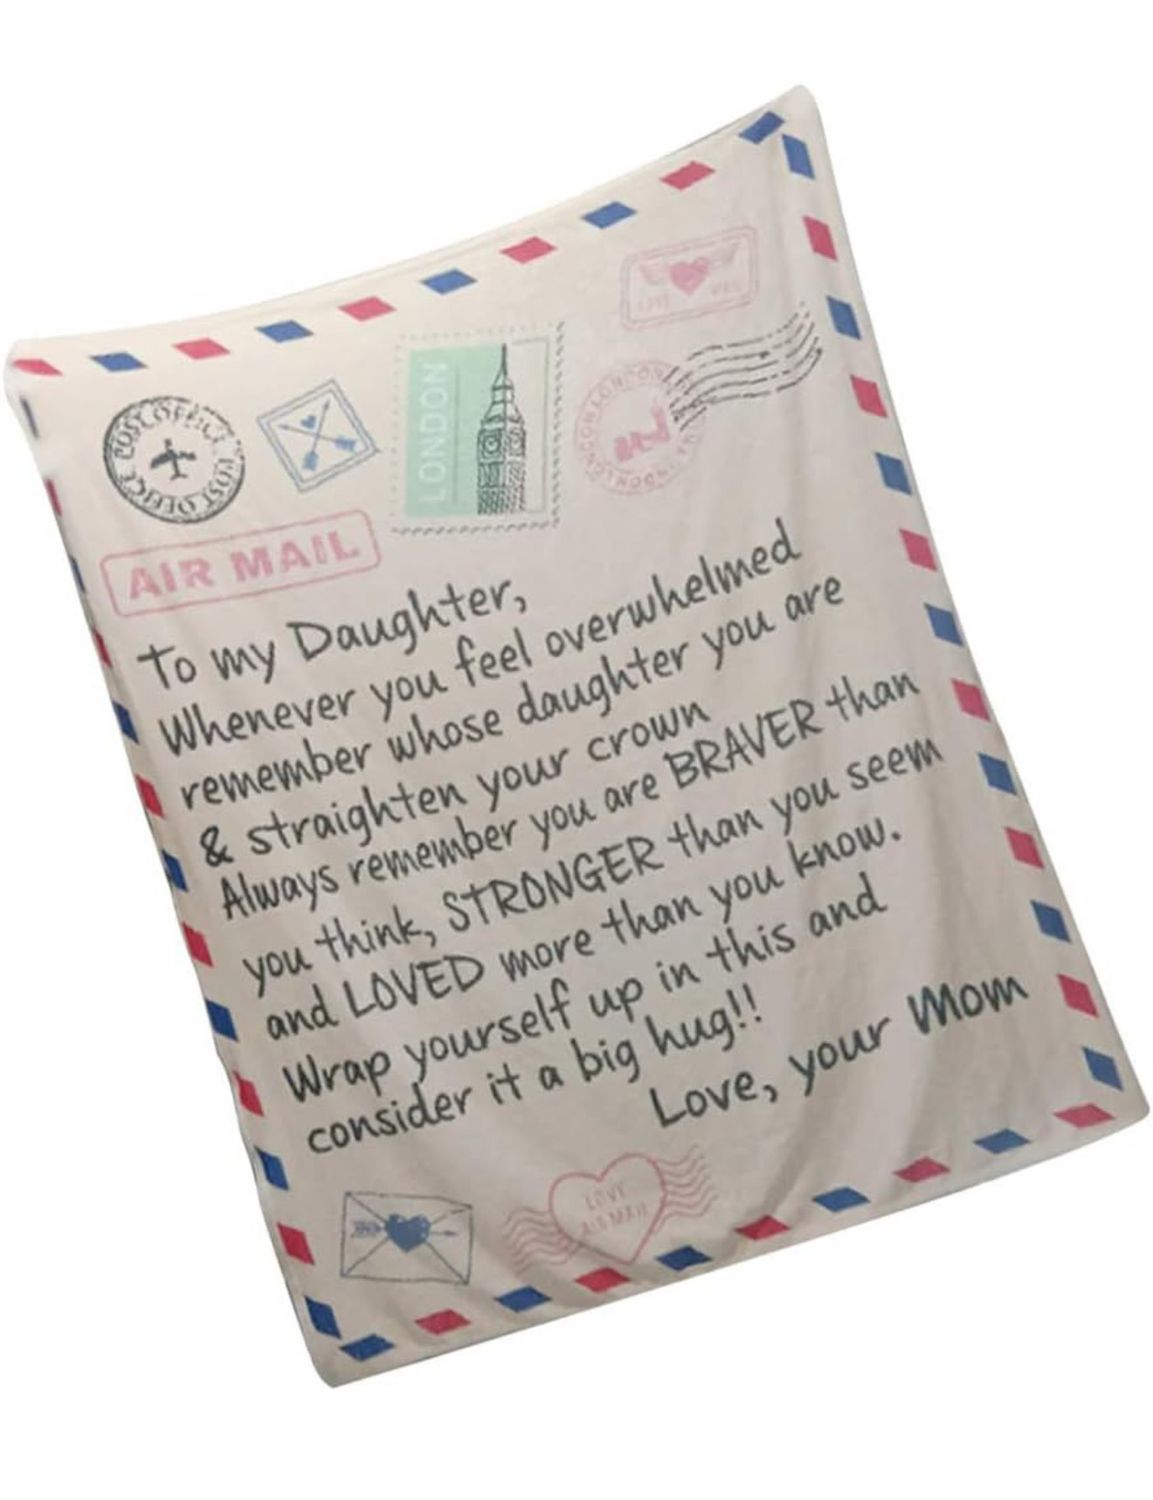 POST OFFICE POST OFFICE
LONDON
LOVE MAIL
LONDON LONDON LONDON
AIR MAIL
To my Daughter,
Whenever you feel overwhelmed
remember whose daughter you are
& straighten your crown
Always remember you are BRAVER than
you think, STRONGER than you seem
and LOVED more than you know.
Wrap yourself up in this and
consider it a big hug!!
Love, your Mom
LOVE
AIR MAIL